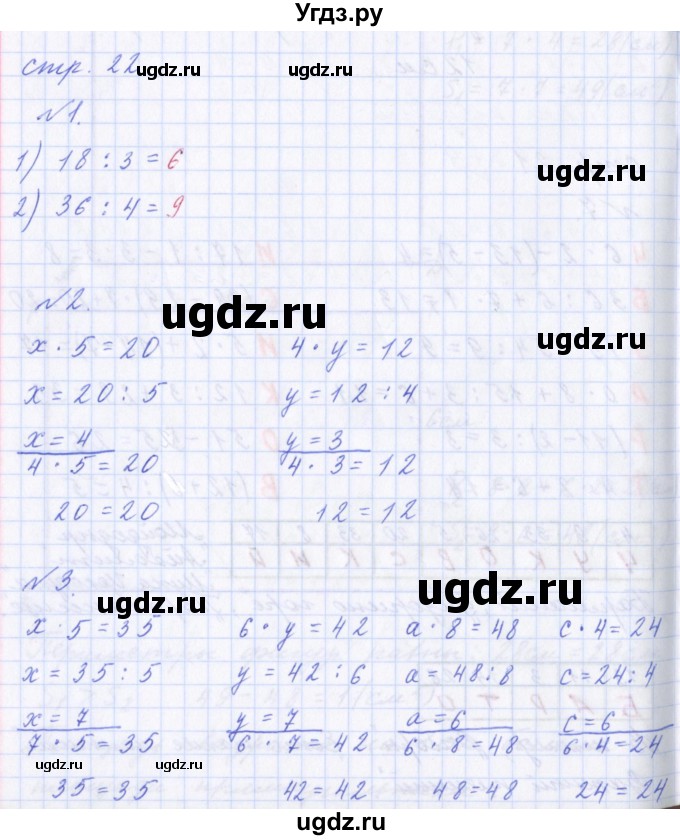 Угдз.ру
стр. 22
ugdz.ru
№1.
1) 18 : 3 = 6
ugdz.ru
2) 36 : 4 = 9
№2.
ugdz.ru
ugdz.ru
x · 5 = 20    4 · y = 12
x = 20 : 5    y = 12 : 4
x = 4    y = 3
4 · 5 = 20    4 · 3 = 12
ugdz.ru
20 = 20    12 = 12
№3.
ugdz.ru
ugdz.ru
x · 5 = 35    6 · y = 42    a · 8 = 48    c · 4 = 24
x = 35 : 5    y = 42 : 6    a = 48 : 8    c = 24 : 4
x = 7    y = 7    a = 6    c = 6
7 · 5 = 35    6 · 7 = 42    6 · 8 = 48    6 · 4 = 24
ugdz.ru    ugdz.ru
35 = 35    42 = 42    48 = 48    24 = 24
ugdz.ru